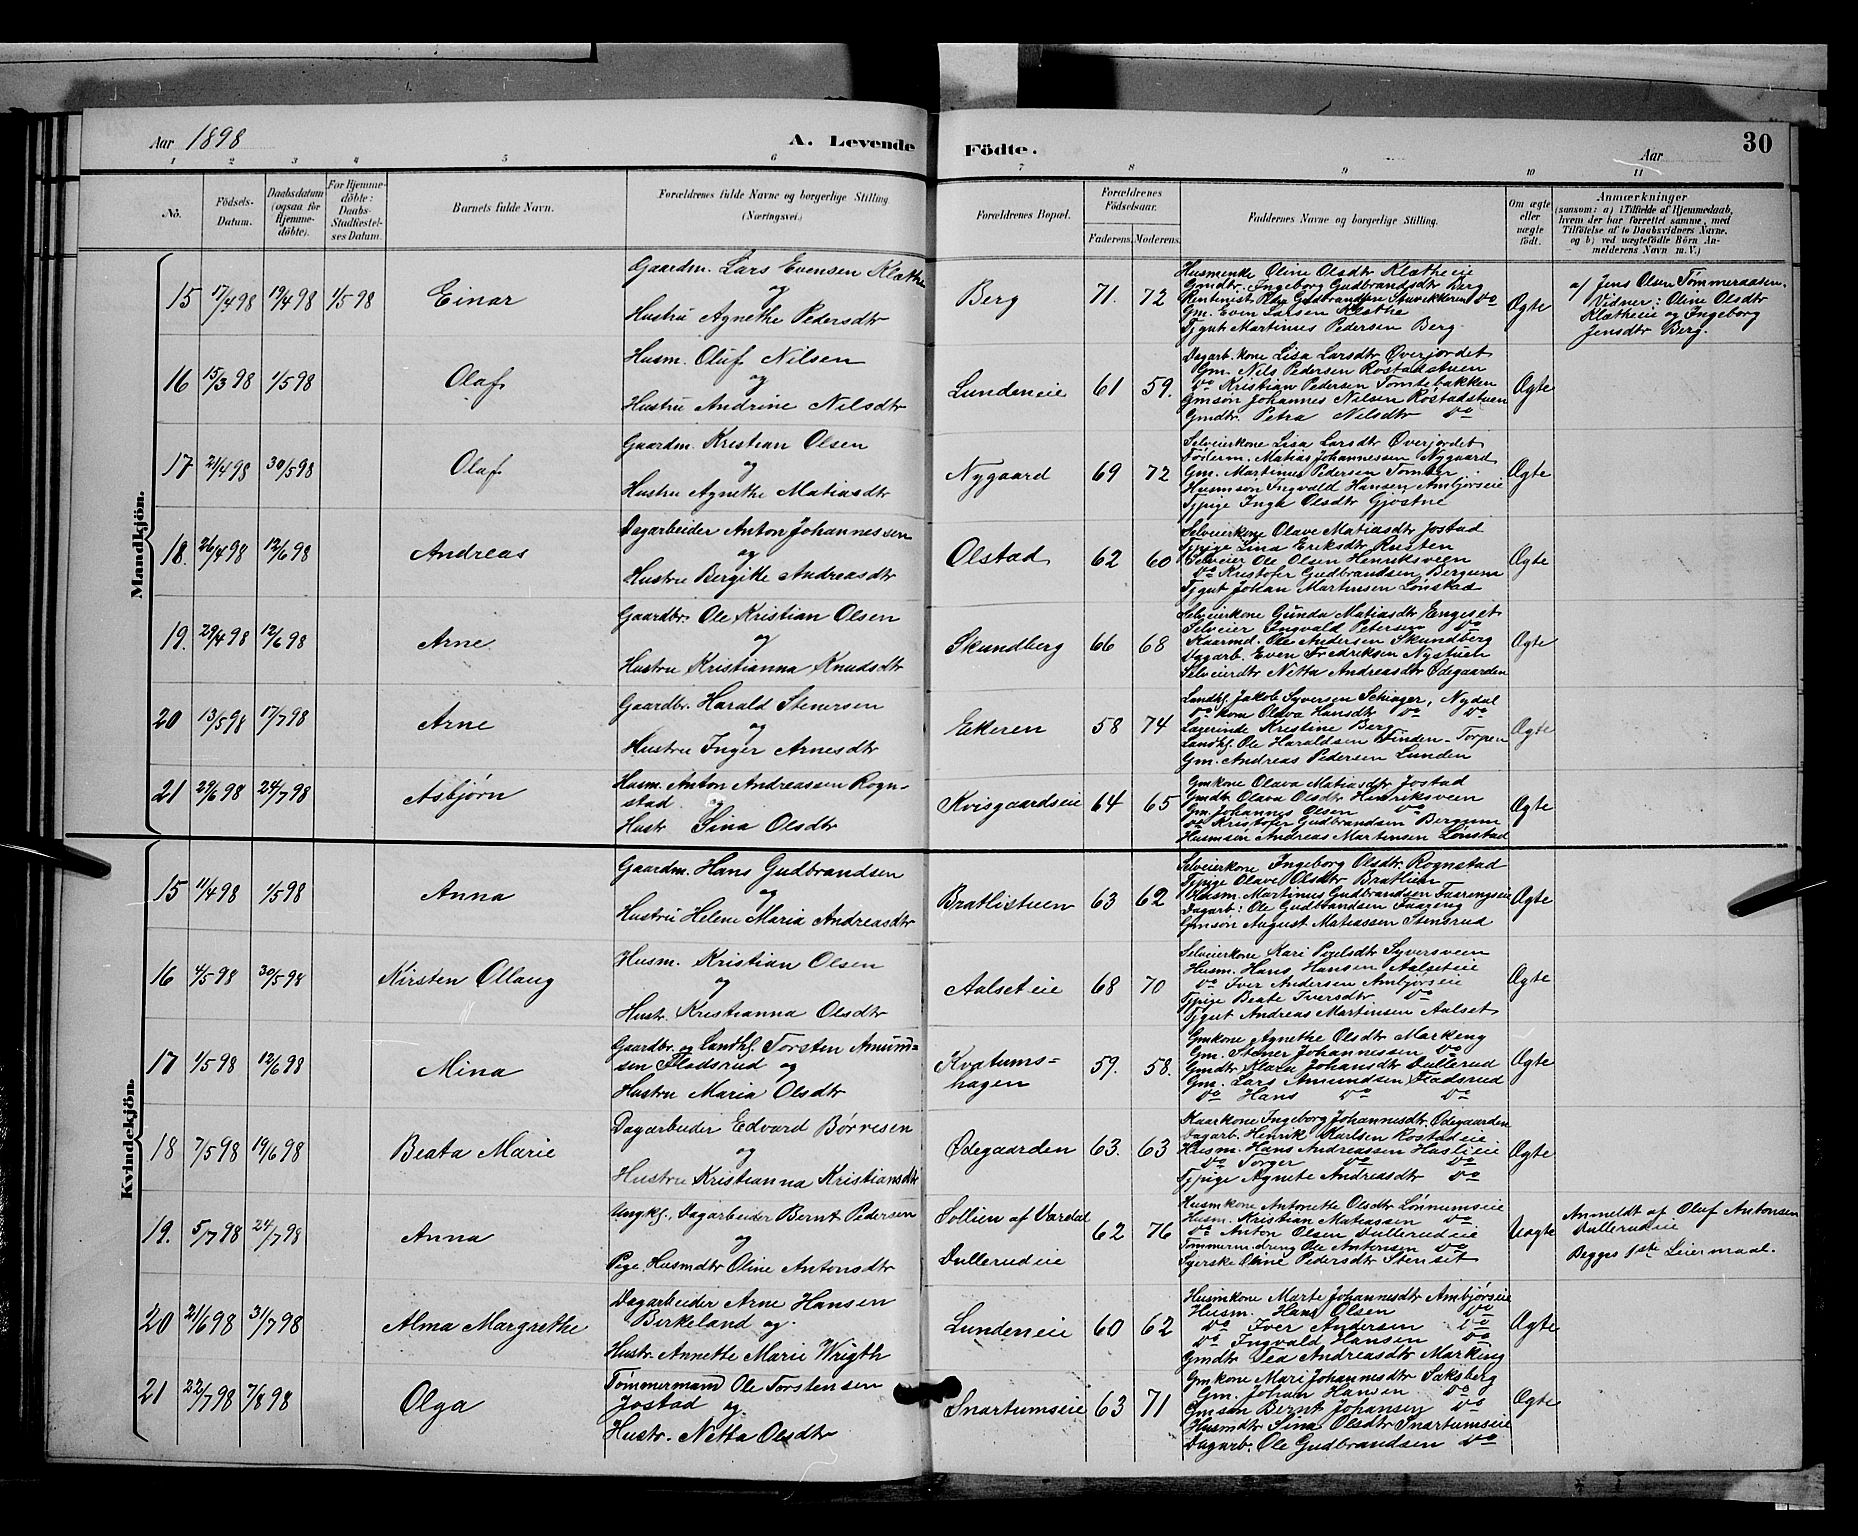 Aar 1898
A. Levende
Födte.
Aar
30
1 2 3 4 5 6 7 8 9 10 11
No.
Födsels-Datum.
Daabsdatum (ogsaa for Hjemme-döbte).
For Hjemme-döbte: Daabs-Stadfæstel-ses Datum.
Barnets fulde Navn.
Forældrenes fulde Navne og borgerlige Stilling (Næringsvei.)
Forældrenes Bopæl.
Forældrenes Födselsaar.
Faderens. Moderens.
Faddernes Navne og borgerlige Stilling.
Om ægte eller uægte födt.
Anmærkninger
(saasom: a) i Tilfælde af Hjemmedaab, hvem der har forrettet samme, med Tilföielse af to Daabsvidners Navne, og b) ved uægtefödte Börn An-melderens Navn m. V.)
Mandkjön.
15 17/4 98 19/4 98 1/5 98 Einar
Gaardm. Lars Evensen Klæthe
og
Hustru Agnethe Pedersdtr
Berg 71. 72
Husmenke Oline Olsdtr Klætheie
Gmdtr. Ingeborg Gudbrandsdtr Berg
Gm. Even Larsen Klæthe
Tjgut Martinus Pedersen Berg.
Ægte
a) Jens Olsen Tømmeraasen.
Vidner: Oline Olsdtr
Klætheie og Ingeborg
Jensdtr Berg.
16 15/3 98 1/5 98 Olaf
Husm. Oluf Nilsen
og
Hustru Andrine Nilsdtr
Lundeneie 61 59.
Dagarb. kone Lisa Larsdtr Øverjordet
Gm. Nils Pedersen Rostadstuen
Do Kristian Pedersen Tomtebakken
Gmsøn Johannes Nilsen Rostadstuen
Gmdtr. Petra Nilsdtr Do
Ægte
17 21/4 98 30/5 98 Olaf
Gaardm. Kristian Olsen
og
Hustru Agnethe Matiasdtr
Nygaard 69 72
Selveierkone Lisa Larsdtr Øverjordet
Föderm. Matias Johannessen Nygaard
Gm. Martinus Pedersen Tomter
Husmsøn Ingvald Hansen Ambjørseie
Tjpige Inga Olsdtr Gjøstne
Ægte
18. 26/4 98 12/6 98 Andreas
Dagarbeider Anton Johannessen
og
Hustru Bergitte Andreasdtr
Olstad 62 60
Selveierkone Olave Matiasdtr Jostad
Tjpige Lina Eriksdtr Rusten
Selveier Ole Olsen Henriksveen
Do Kristofer Gudbrandsen Bergum
Tjgut Johan Martinsen Lønstad
Ægte
19. 29/4 98 12/6 98 Arne
Gaardbr. Ole Kristian Olsen
og
Hustru Kristianna Knudsdtr
Skundberg 66 68
Selveierkone Gunda Matiasdtr Engeset
Selveier Ingvald Petersen Do
Kaarmd. Ole Andersen Skundberg
Dagarb. Even Fredriksen Nystuen
Selveierdtr Netta Andreasdtr Ødegaarden
Ægte
20 13/5 98 17/7 98 Arne
Gaardbr. Harald Stenersen
og
Hustru Inger Arnesdtr
Ekeren 58 74
Landh. Jakob Syversen Schinger, Nydal
Do kone Olava Hansdtr Do Do
Lærerinde Kristine Berg
Landh. Ole Haraldsen Vinden - Torpen
Gm. Andreas Pedersen Lunden
Ægte
21 29/6 98 24/7 98 Asbjørn
Husm. Anton Andreassen Rogn-
stad og
Hustr Sina Olsdtr
Kvisgaardseie 64 65
Gmkone Olava Matiasdtr Jostad
Gmdtr Olava Olsdtr Henriksveen
Gm. Johannes Olsen Do
Do Kristofer Gudbrandsen Bergum
Husmsøn Andreas Martinsen Lønstad
Ægte
Kvindekjön.
15 11/4 98 1/5 98 Anna
Gaardm. Hans Gudbrandsen
og
Hustru Helene Maria Andreasdtr
Bratlistuen 63 62
Selveierkone Ingeborg Olsdtr Rognstad
Tjpige Olave Olsdtr Bratlien
Husm. Martinus Gudbrandsen Faarengseie
Dagarb: Ole Gudbrandsen
Gmsøn August Matiassen Stensrud
Ægte
16 4/5 98 30/5 98 Kirsten Ollaug
Husm. Kristian Olsen
og
Hustr. Kristianna Olsdtr
Aalseteie 68 70
Selveierkone Kari Povelsdtr Syversveen
Husm. Hans Hansen Aalseteie
Do Iver Andersen Ambjørseie
Tjpige Beate Iversdtr Do
Tjgut Andreas Martinsen Aalset
Ægte
17 1/5 98 12/6 98 Mina
Gaardbr. og Landh. Torsten Amund-
sen Fladsrud og
Hustru Maria Olsdtr
Kvatums-
hagen 59. 58.
Gmkone Agnethe Olsdtr Markeng
Gm. Stener Johannessen Do
Gmdtr Klara Johansdtr Dullerud
Gm. Lars Amundsen Fladsrud
Do Hans Do Do
Ægte
18 7/5 98 19/6 98 Beata Marie
Dagarbeider Edvard Børresen
og
Hustru Kristianna Kristiansdtr
Ødegaarden 63. 63
Kaarkone Ingeborg Johannesdtr. Ødegaarden
Dagarb. Henrik Karlsen Rostadeie
Husm. Hans Andreassen Haslieie
Do Torger Do Do
Tjpige Agnete Andreasdtr Do
Ægte
19. 5/7 98 24/7 98 Anna
Ungk., Dagarbeider Bernt Pedersen
og
Pige, Husmdtr Oline Antonsdtr
Sollien af Vardal
Dullerudeie 62 76
Husmkone Antonette Olsdtr Lønnumseie
Husm. Kristian Matiassen Do
Do Anton Olsen Dullerudeie
Tømmermdreng Ole Antonsen Do
Syerske Oline Pedersdtr Stenset
Uægte
Anmeldt af Oluf Antonsen
Dullerudeie
Begges 1ste Leiermaal.
20 21/6 98 31/7 98 Alma Margrethe
Dagarbeider Arne Hansen
Birkeland og
Hustr. Annette Marie Wrigth
Lundeneie 60 62
Husmkone Marte Johannesdtr Ambjørseie
Husm. Hans Olsen Do
Do Iver Andersen Do
Do Ingvald Hansen Do
Gmdtr Tea Andreasdtr Markeng
Ægte
21 22/7 98 7/8 98 Olga
Tømmermand Ole Torstensen
Jostad og
Hustr. Netta Olsdtr
Snartumseie 63 71
Gmkone Mari Johannesdtr Saksberg
Gm. Johan Hansen Do
Gmsøn Bernt Johansen Do
Husmdtr Sina Olsdtr Snartumseie
Dagarb. Ole Gudbrandsen Do
Ægte